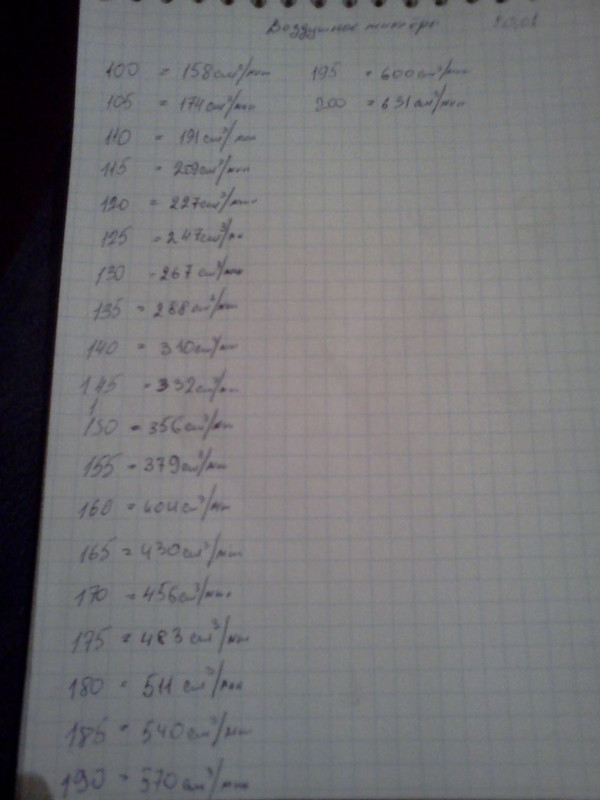 Воздушные жиклёры
100 = 158 см³/мин
105 = 174 см³/мин
110 = 191 см³/мин
115 = 209 см³/мин
120 = 227 см³/мин
125 = 247 см³/мин
130 = 267 см³/мин
135 = 288 см³/мин
140 = 310 см³/мин
145 = 332 см³/мин
150 = 356 см³/мин
155 = 379 см³/мин
160 = 404 см³/мин
165 = 430 см³/мин
170 = 456 см³/мин
175 = 483 см³/мин
180 = 511 см³/мин
185 = 540 см³/мин
190 = 570 см³/мин
195 = 600 см³/мин
200 = 631 см³/мин